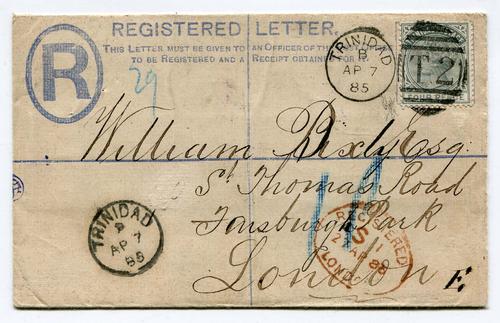 REGISTERED LETTER.
THIS LETTER MUST BE GIVEN TO AN OFFICER OF THE
TO BE REGISTERED AND A RECEIPT OBTAINED FOR
R
29
TRINIDAD
B
AP 7
85
T 2
FOUR
William Bixby Esq:
St Thomas Road
Finsburgh Park
London E.
TRINIDAD
B
AP 7
85
REGISTERED
LONDON